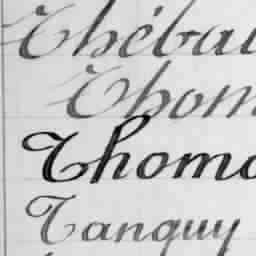 Thébau
Thom
Thoma
Tanguy